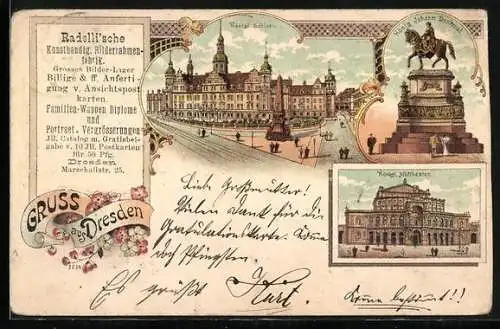 Radelli'sche
Kunsthandlg. Bilderrahmen-
fabrik.
Grosses Bilder-Lager
Billige & ff. Anferti
gung v. Ansichtspost
karten.
Familien-Wappen Diplome
und
Portraet-Vergrösserungen
JB. Catalog m. Gratisbei-
gabe v. 10 JB. Postkarten
für 50 Pfg.
Dresden
Marschallstr. 25.
Königl. Schloss
König Johann Denkmal
Königl. Hoftheater.
GRUSS
aus Dresden
Liebe Großmutter!
Vielen Dank für die
Gratulationskarte. Komme
doch Pfingsten.
Es grüßt Kurt.
Komme bestimmt!!